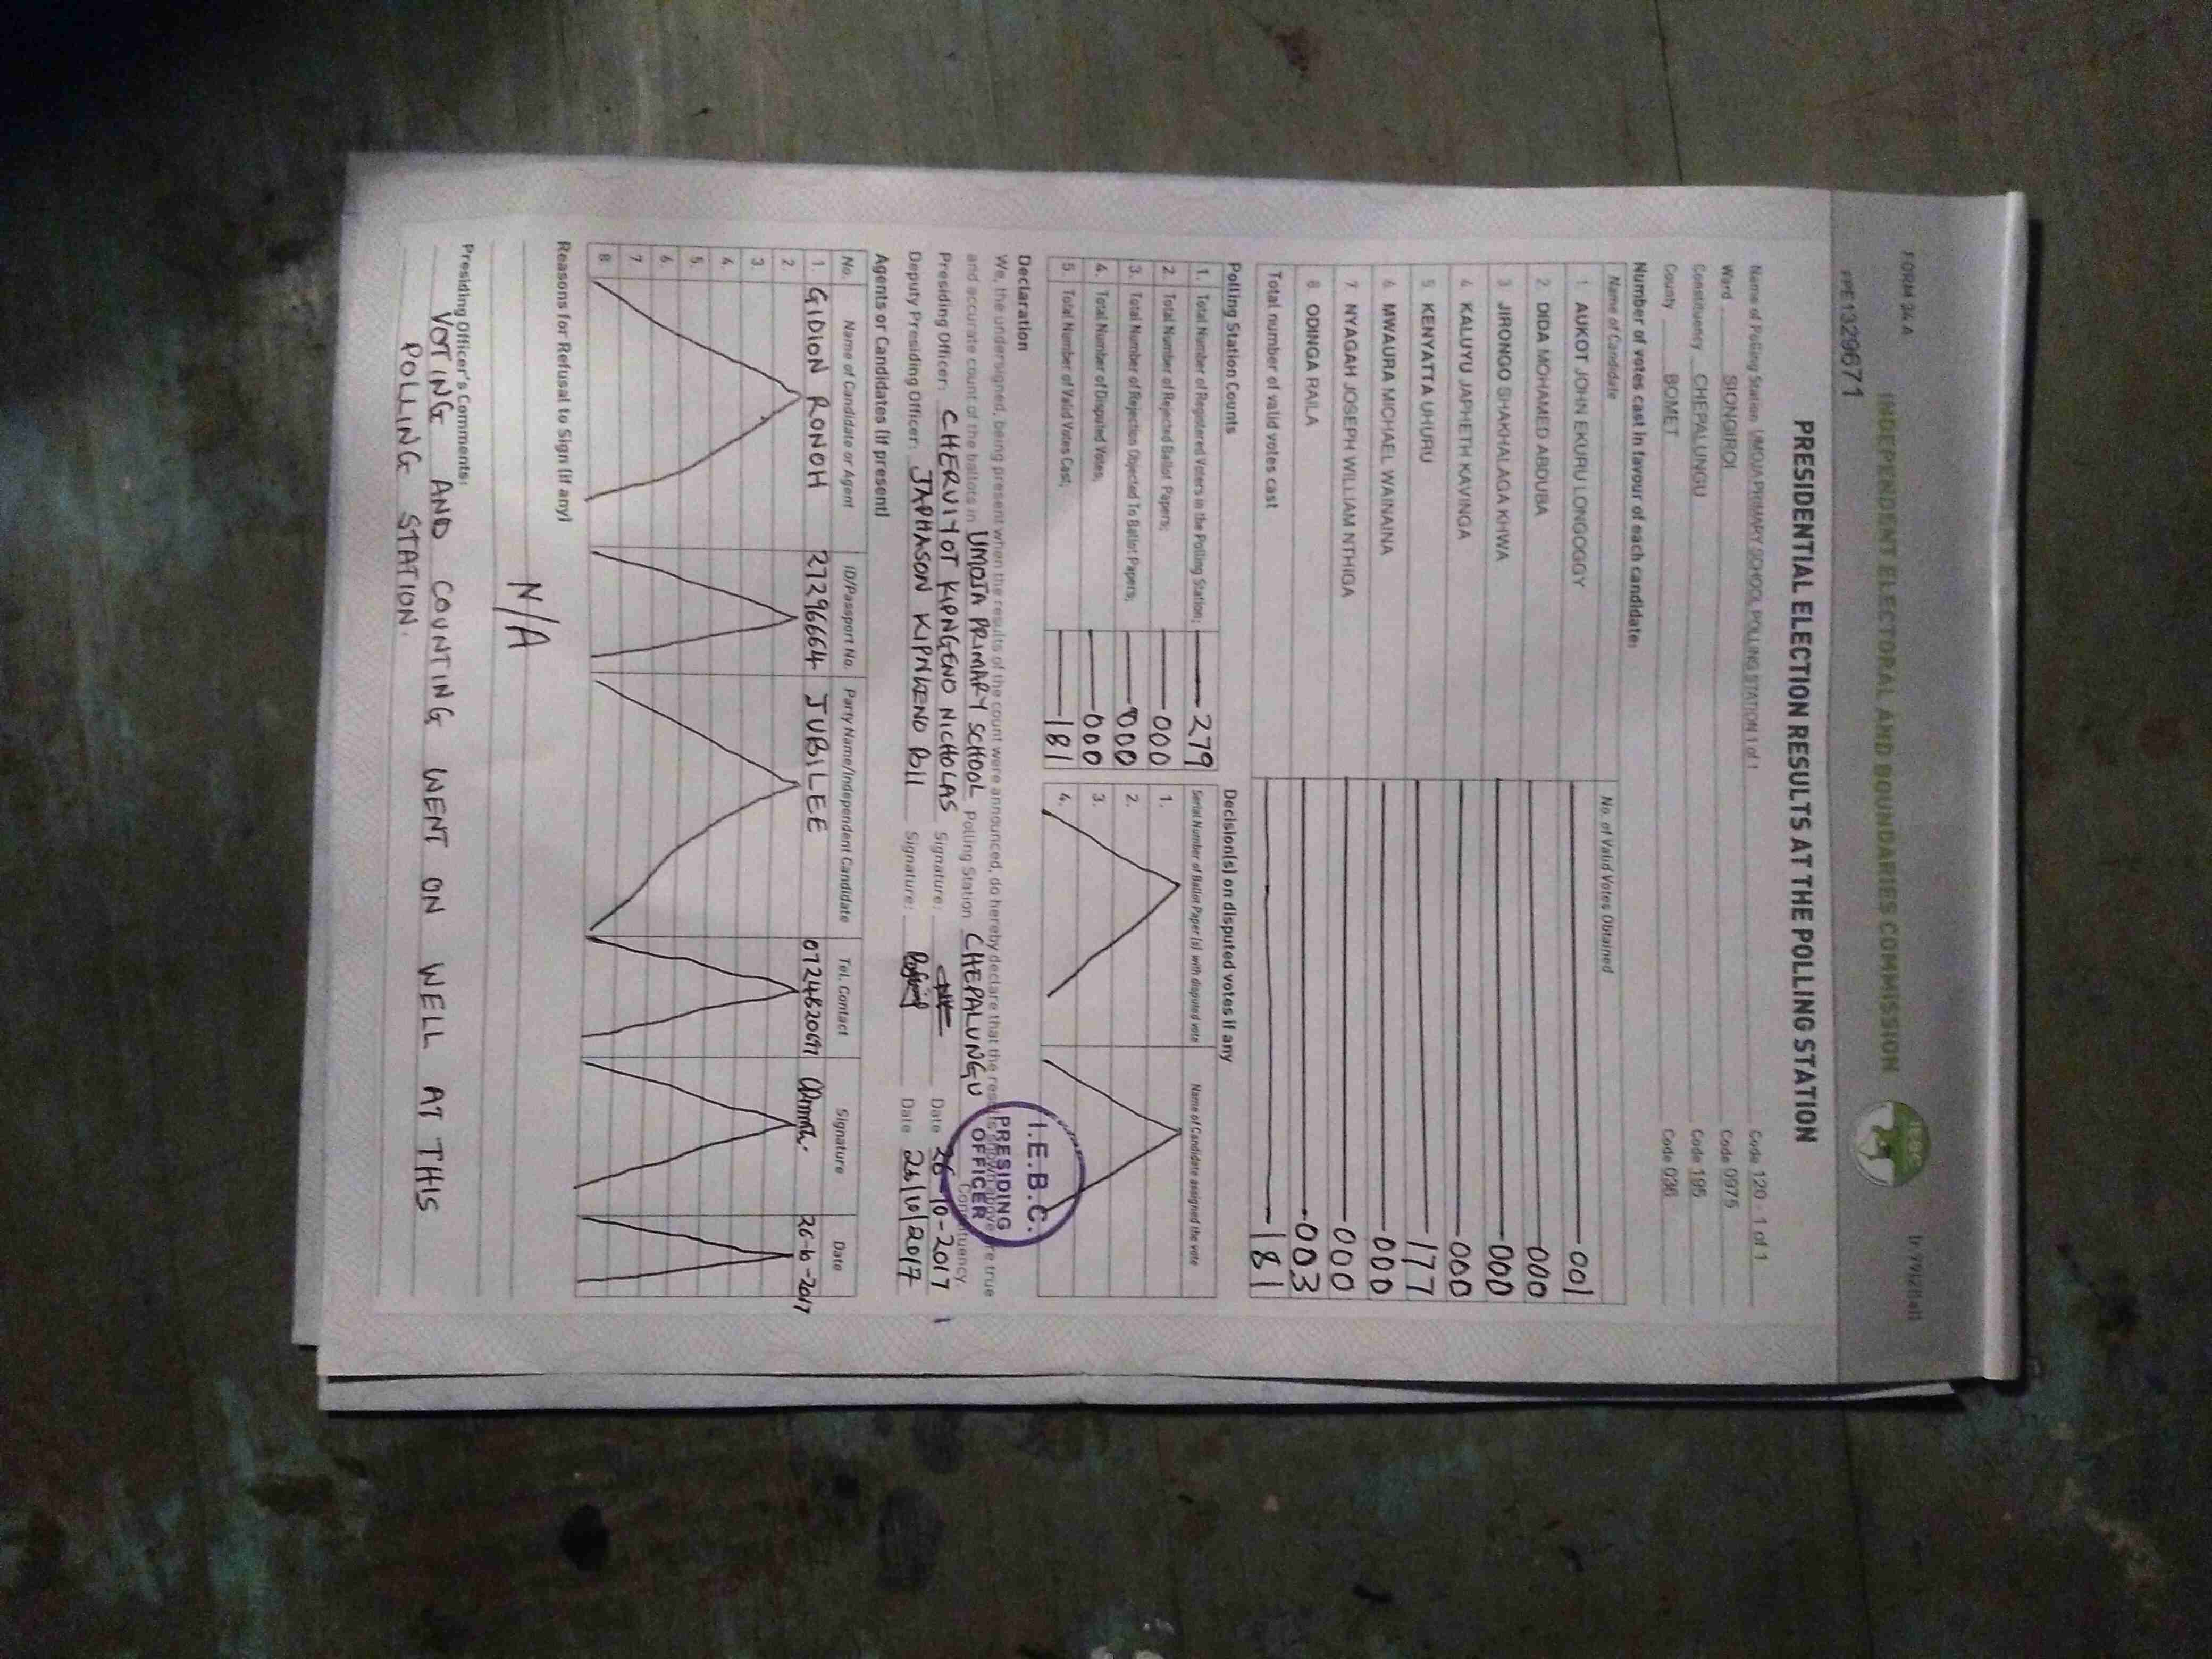 FORM 34 A
INDEPENDENT ELECTORAL AND BOUNDARIES COMMISSION
IEBC
PRESIDENTIAL ELECTION RESULTS AT THE POLLING STATION
Name of Polling Station UMOJA PRIMARY SCHOOL POLLING STATION 1 of 1 Code 120 - 1 of 1
Ward SIONGIROI Code 0975
Constituency CHEPALUNGU Code 195
County BOMET Code 036
Number of votes cast in favour of each candidate:
Name of Candidate No. of Valid Votes Obtained
1 AUKOT JOHN EKURU LONGOGGY 001
2 DIDA MOHAMED ABDUBA 000
3 JIRONGO SHAKHALAGA KHWA 000
4 KALUYU JAPHETH KAVINGA 000
5 KENYATTA UHURU 177
6 MWAURA MICHAEL WAINAINA 000
7 NYAGAH JOSEPH WILLIAM NTHIGA 000
8 ODINGA RAILA 003
Total number of valid votes cast 181
Polling Station Counts
1. Total Number of Registered Voters in the Polling Station; 279
2. Total Number of Rejected Ballot Papers; 000
3. Total Number of Rejection Objected To Ballot Papers; 000
4. Total Number of Disputed Votes; 000
5. Total Number of Valid Votes Cast; 181
Decision(s) on disputed votes if any
Serial Number of Ballot Paper (s) with disputed vote Name of Candidate assigned the vote
1.
2.
3.
4.
Declaration
We, the undersigned, being present when the results of the count were announced, do hereby declare that the results shown above are true
and accurate count of the ballots in UMOJA PRIMARY SCHOOL Polling Station CHEPALUNGU Constituency.
Presiding Officer: CHERUIYOT KIPNGENO NICHOLAS Signature: Date 26-10-2017
Deputy Presiding Officer: JAPHASON Signature: Date 26/10/2017
I.E.B.C.
PRESIDING
OFFICER
Agents or Candidates (if present)
No. Name of Candidate or Agent ID/Passport No. Party Name/Independent Candidate Tel. Contact Signature Date
1. GIDION RONOH 27296664 JUBILEE 26-10-2017
2.
3.
4.
5.
6.
7.
8.
Reasons for Refusal to Sign (if any)
N/A
Presiding Officer's Comments:
VOTING AND COUNTING WENT ON WELL AT THIS
POLLING STATION.